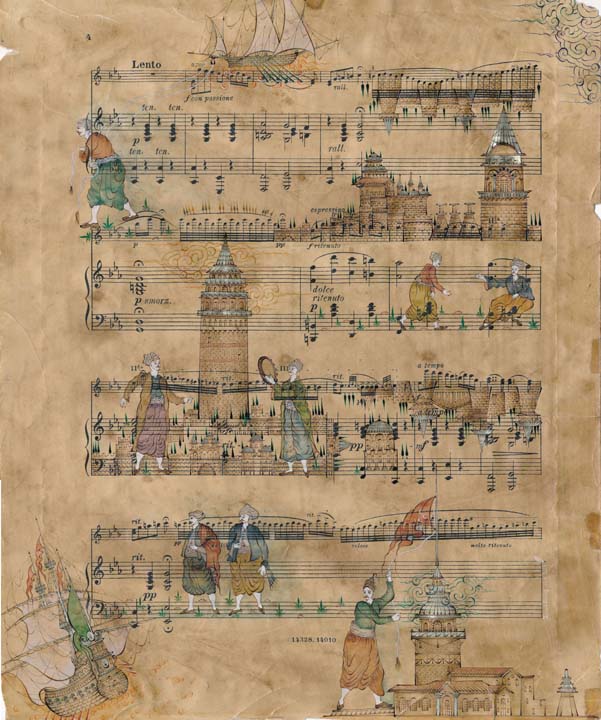 4
Lento
f con passione
rall.
ten. ten.
p
ten. ten.
rall.
espressivo
p
pp
f ritenuto
p smorz.
dolce
ritenuto
p
IIª
III
rit.
a tempo
a tempo
pp
mf
rit.
pp
rit.
veloce
molto ritenuto
rit.
pp
14328. 14010